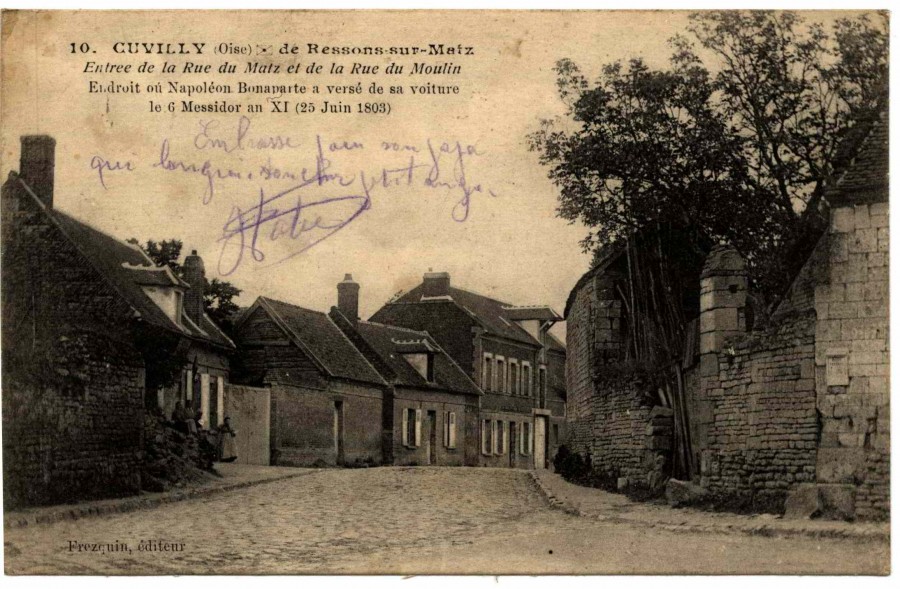 10. CUVILLY (Oise) de Ressons-sur-Matz
Entree de la Rue du Matz et de la Rue du Moulin
Endroit où Napoléon Bonaparte a versé de sa voiture
le 6 Messidor an XI (25 Juin 1803)
Embrasse
que petit
Frezquin, éditeur